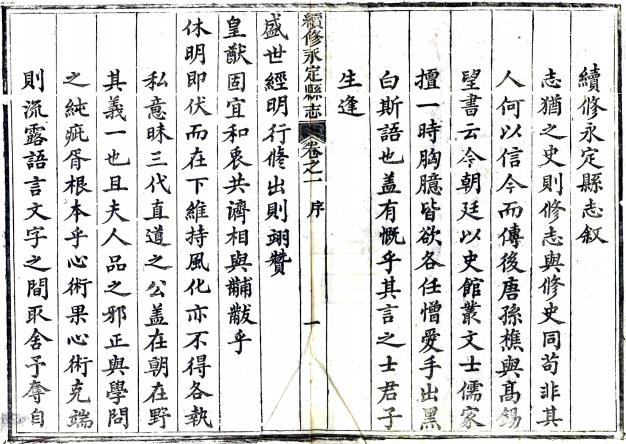 續修永定縣志叙
志猶之史則修志與修史同苟非其
人何以信今而傳後唐孫樵與高錫
望書云今朝廷以史館叢文士儒家
擅一時胸臆皆欲各任憎愛手出黑
白斯語也盖有慨乎其言之士君子
生逢
續修永定縣志
卷之一
序
一
盛世經明行修出則翊贊
皇猷固宜和衷共濟相與黼黻乎
休明即伏而在下維持風化亦不得各執
私意昧三代直道之公盖在朝在野
其義一也且夫人品之邪正與學問
之純疵胥根本乎心術果心術克端
則流露語言文字之間取舍予奪自